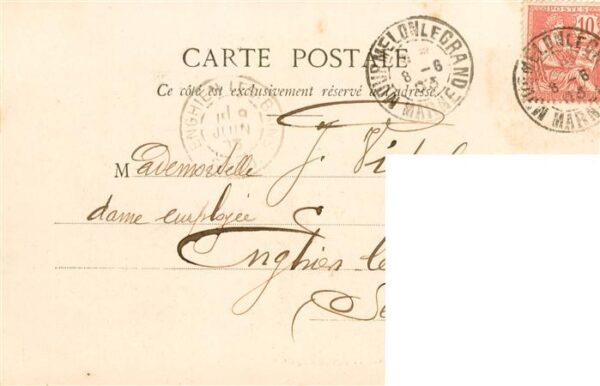 CARTE POSTALE
Ce côté est exclusivement réservé à l'adresse.
MOURMELON LE GRAND
8 - 6
03
MARNE
10
POSTES
MOURMELON LE GRAND
8 - 6
03
MARNE
ENGHIEN LES BAINS
9
JUIN
03
Mademoiselle J.
dame employée
Enghien le